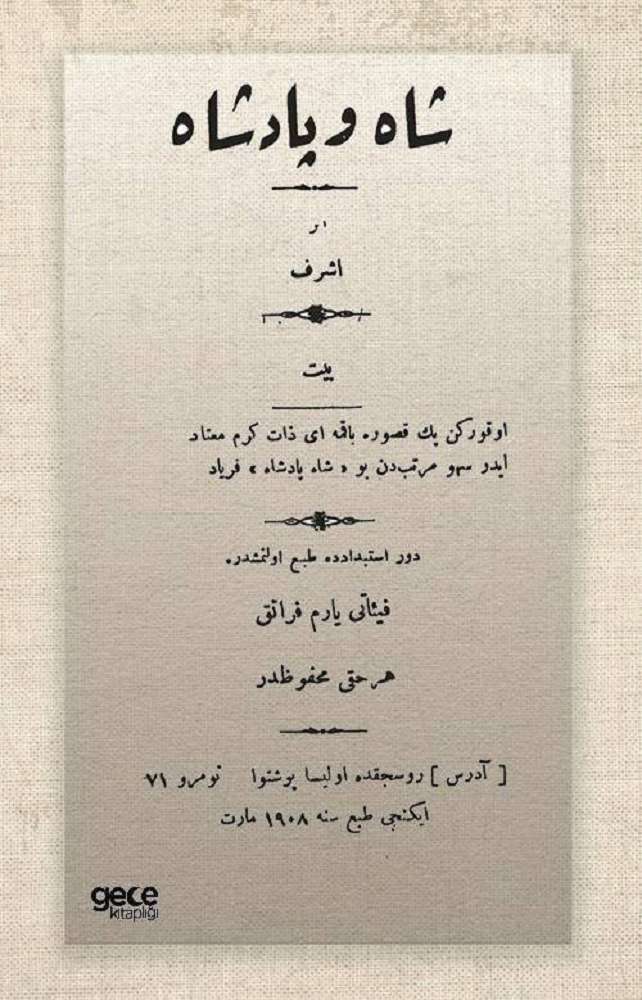 شاه و پادشاه
اثر
اشرف
بيت
اوقوركن پك قصوره باقمه اى ذات كرم معتاد
ايدر سهو مرتب‌دن بو « شاه پادشاه » فرياد
دور استبدادده طبع اولنمشدر.
فيئاتى يارم فرانق
هر حقى محفوظدر
[ آدرس ] روسجقده اوليسا پرشتوا نومرو ٧١
ايكنجى طبع سنه ١٩٠٨ مارت
gece
kitaplığı